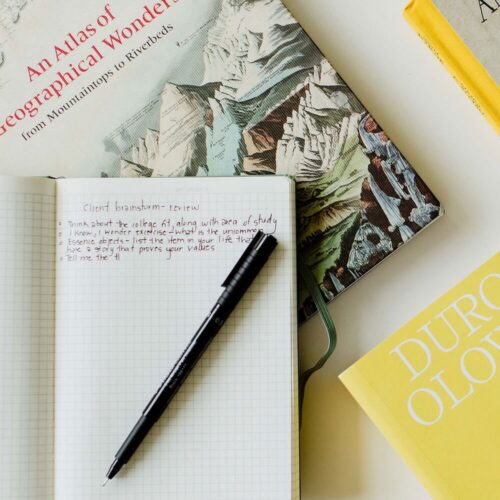 An Atlas of
Geographical Wonders
from Mountaintops to Riverbeds
Client brainstorm - review
Think about the college fit, along with area of study
I know, I wonder exercise - what is the uncommon
Essence objects - list the item in your life that
have a story that proves your values
Tell me the
DURO
OLOW